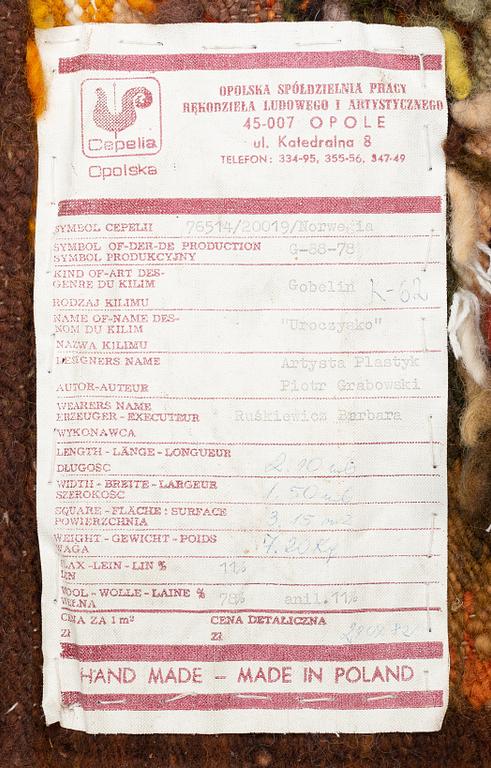 Cepelia
Opolska
OPOLSKA SPÓŁDZIELNIA PRACY
RĘKODZIEŁA LUDOWEGO I ARTYSTYCZNEGO
45-007 OPOLE
ul. Katedralna 8
TELEFON: 334-95, 355-56, 347-49
SYMBOL CEPELII 76514/20019/Norwegia
SYMBOL OF-DER-DE PRODUCTION G-88-78
SYMBOL PRODUKCYJNY
KIND OF-ART DES-
GENRE DU KILIM Gobelin K-62
RODZAJ KILIMU
NAME OF-NAME DES-
NOM DU KILIM "Uroczysko"
NAZWA KILIMU
DESIGNERS NAME Artysta Plastyk
AUTOR-AUTEUR Piotr Grabowski
WEARERS NAME
ERZEUGER - EXECUTEUR Ruśkiewicz Barbara
WYKONAWCA
LENGTH - LÄNGE - LONGUEUR
DŁUGOŚĆ 2.10 mb
WIDTH - BREITE - LARGEUR
SZEROKOŚĆ 1.50 mb
SQUARE - FLÄCHE : SURFACE
POWIERZCHNIA 3.15 m2
WEIGHT - GEWICHT - POIDS
WAGA 7.20 Kg
FLAX - LEIN - LIN % 11%
LEN
WOOL - WOLLE - LAINE %
WEŁNA 78% anil. 11%
CENA ZA 1 m² CENA DETALICZNA
ZŁ ZŁ
HAND MADE – MADE IN POLAND